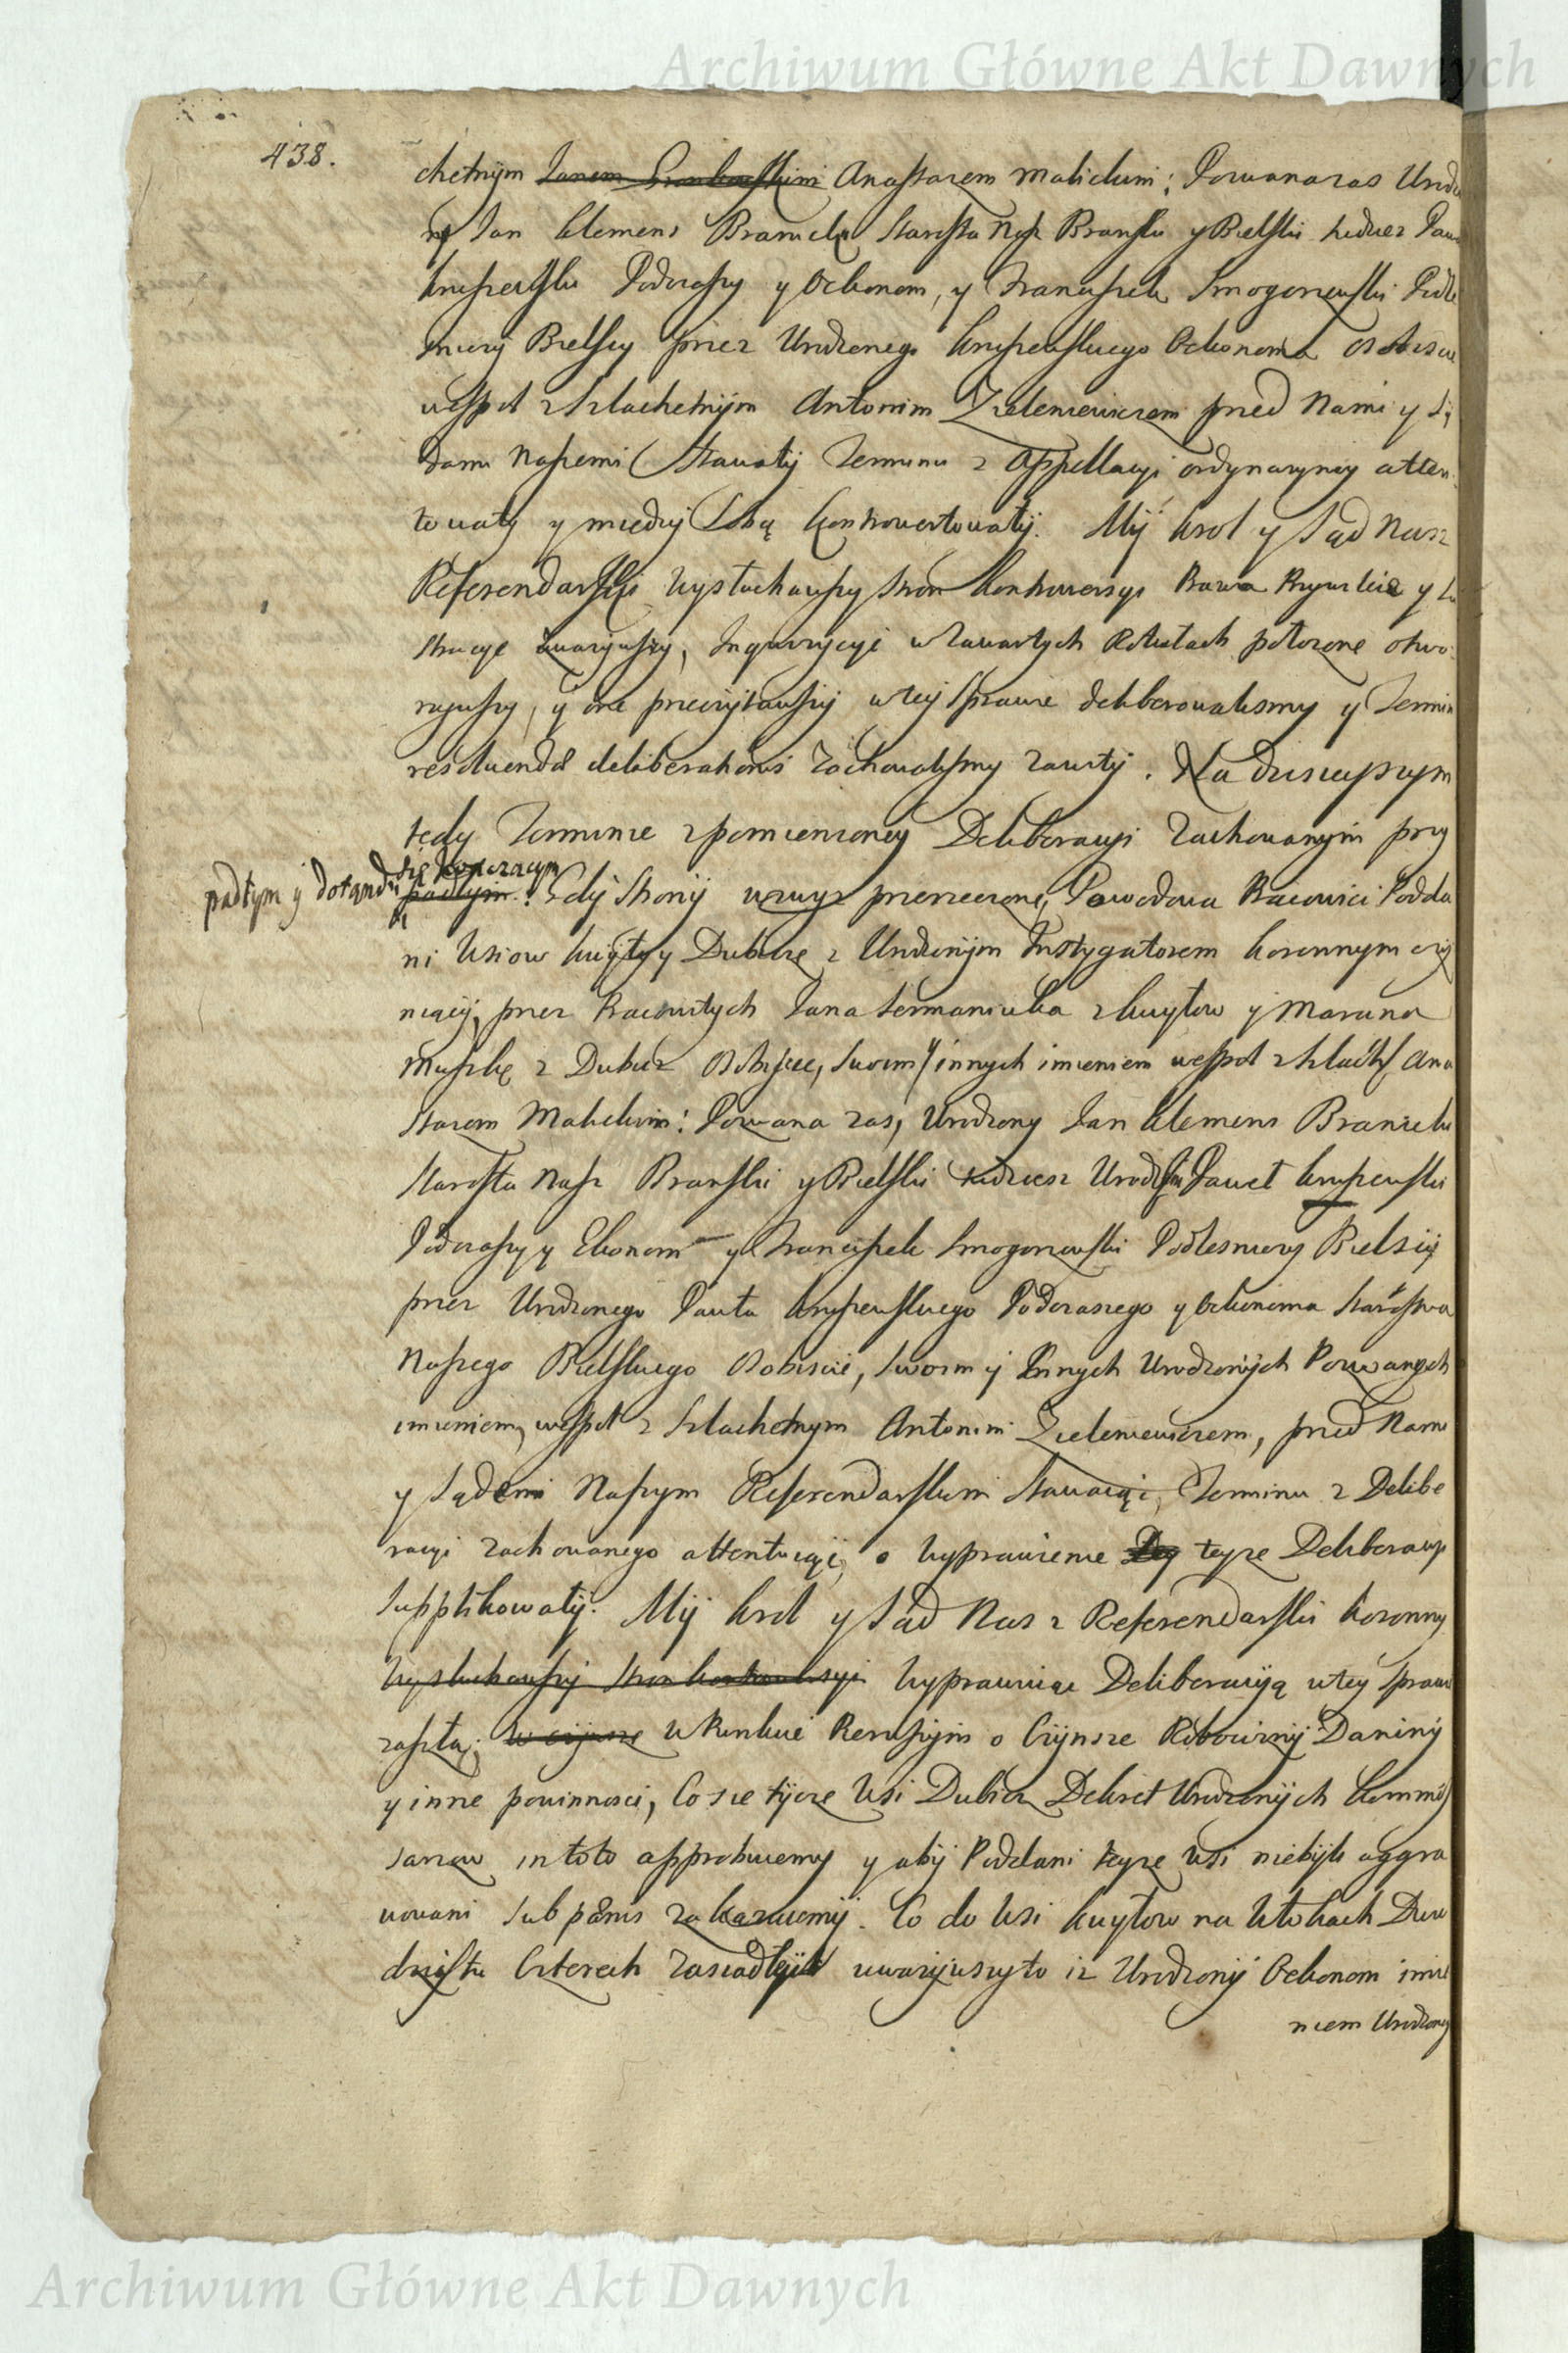 Archiwum Główne Akt Dawnych
438.
chetnym Janem Anastazem Malickim; Pozwana zas Urodzo
ny Jan Klemens Branicki Starosta Nasz Branski y Bielski tudziez Paweł
Krupzewski Podczaszy y Oekonom, y Franciszek Smogorzewski Podle
sniczy Bielscy przez Urodzonego Oekonoma osobiscie
wespoł z Szlachetnym Antonim Zieleniewiczem przed Nami y Są
dami Naszemi Stawały Terminu z Appellacyi ordynaryiney atten
towały y miedzy Sobą kontrowertowały. My Krol y Sąd Nasz
Referendarski wysłuchawszy stron kontrowersyi Prawa Przywileia y Lu
stracye zwazywszy, Inquizycyi w zawartych Rotułach położone otwo
rzywszy, y one przeczytawszy w tey sprawie deliberowalismy y Termin
resolvendae deliberationis zachowalismy zawity. Na dzisieyszym
tedy Terminie z pomienioney Deliberacyi Zachowanym przy
padłym y dotąnd się toczącym
padłym. Gdy Strony wzwyz przerzeczone, Powodowa Pracowici Podda
ni Wsiow Kuytey y Dubicze z Urodzonym Instygatorem Koronnym czy
niący, przez Pracowitych Jana z Kuytow y Marcina
z Dubicz Osobiscie, swoim y innych imieniem wespoł z Szlach: Ana
stazem Malickim; Pozwana zas, Urodzony Jan Klemens Branicki
Starosta Nasz Branski y Bielski tudziesz Paweł
Podczaszy y Ekonom y Franciszek Smogorzewski Podlesniczy Bielscy
przez Urodzonego Pawła Podczaszego y Oekonoma Starostwa
Naszego Bielskiego Osobiscie, swoim y Innych Urodzonych Pozwanych
imieniem, wespoł z Szlachetnym Antonim Zieleniewiczem, przed Nami
y Sądem Naszym Referendarskim Stawaiąc, Terminu z Delibe
racyi zachowanego attentuiąc, o wyprawienie teyze Deliberacyi
supplikowały. My Krol y Sąd Nasz Referendarski Koronny
wysłuchawszy stron kontrowersyi wyprawuiąc Deliberacyią w tey sprawie
zaszłą; w czynsze w Punkcie Remissyinym o Czynsze Robocizny Daniny
y inne powinnosci, Co sie tycze Wsi Dubicz Dekret Urodzonych Kommis
sarzow in toto approbuiemy y aby Poddani teyze Wsi niebyli aggra
wowani sub pænis zakazuiemy. Co do Wsi Kuytow na Włokach Dwu
dziestu Czterech zasiadłych uwazywszy to iz Urodzony Oekonom imie
niem Urodzonego
Archiwum Główne Akt Dawnych